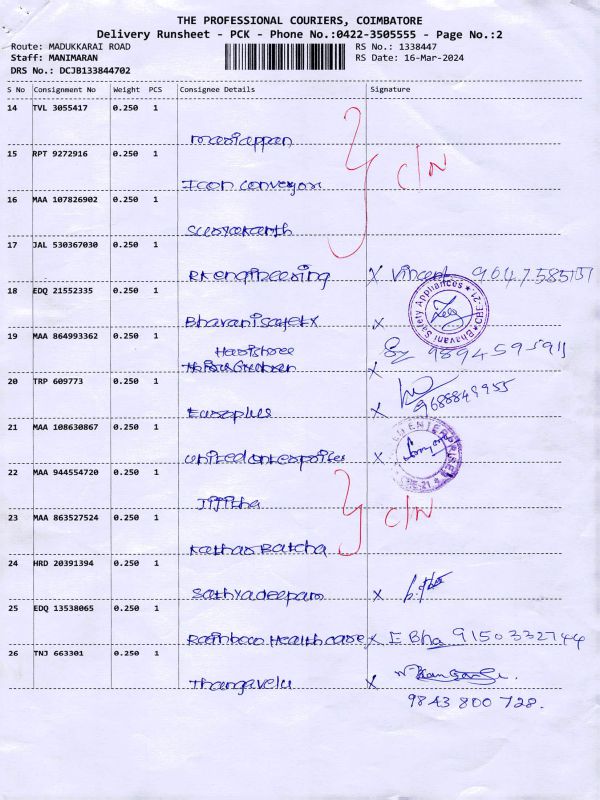 THE PROFESSIONAL COURIERS, COIMBATORE
Delivery Runsheet - PCK - Phone No.:0422-3505555 - Page No.:2
Route: MADUKKARAI ROAD
Staff: MANIMARAN
DRS No.: DCJB133844702
RS No.: 1338447
RS Date: 16-Mar-2024
S No Consignment No Weight PCS Consignee Details Signature
14 TVL 3055417 0.250 1
mariappan
15 RPT 9272916 0.250 1
Icon conveyor
C/N
16 MAA 107826902 0.250 1
17 JAL 530367030 0.250 1
RK engineering x Vincent
18 EDQ 21552335 0.250 1
Bhavani Safety x
Bhavani Safety Appliances * CBE-21 *
19 MAA 864993362 0.250 1
Harishree
x
20 TRP 609773 0.250 1
Europlus x 9688849955
21 MAA 108630867 0.250 1
United enterprises x
ENTERPRISES
22 MAA 944554720 0.250 1
Jijitha
23 MAA 863527524 0.250 1
C/N
Kathar Batcha
24 HRD 20391394 0.250 1
Sathyadeepam x
25 EDQ 13538065 0.250 1
Rainbow Health care x E Bha 9150332744
26 TNJ 663301 0.250 1
Thangavelu x
9843 800 728.